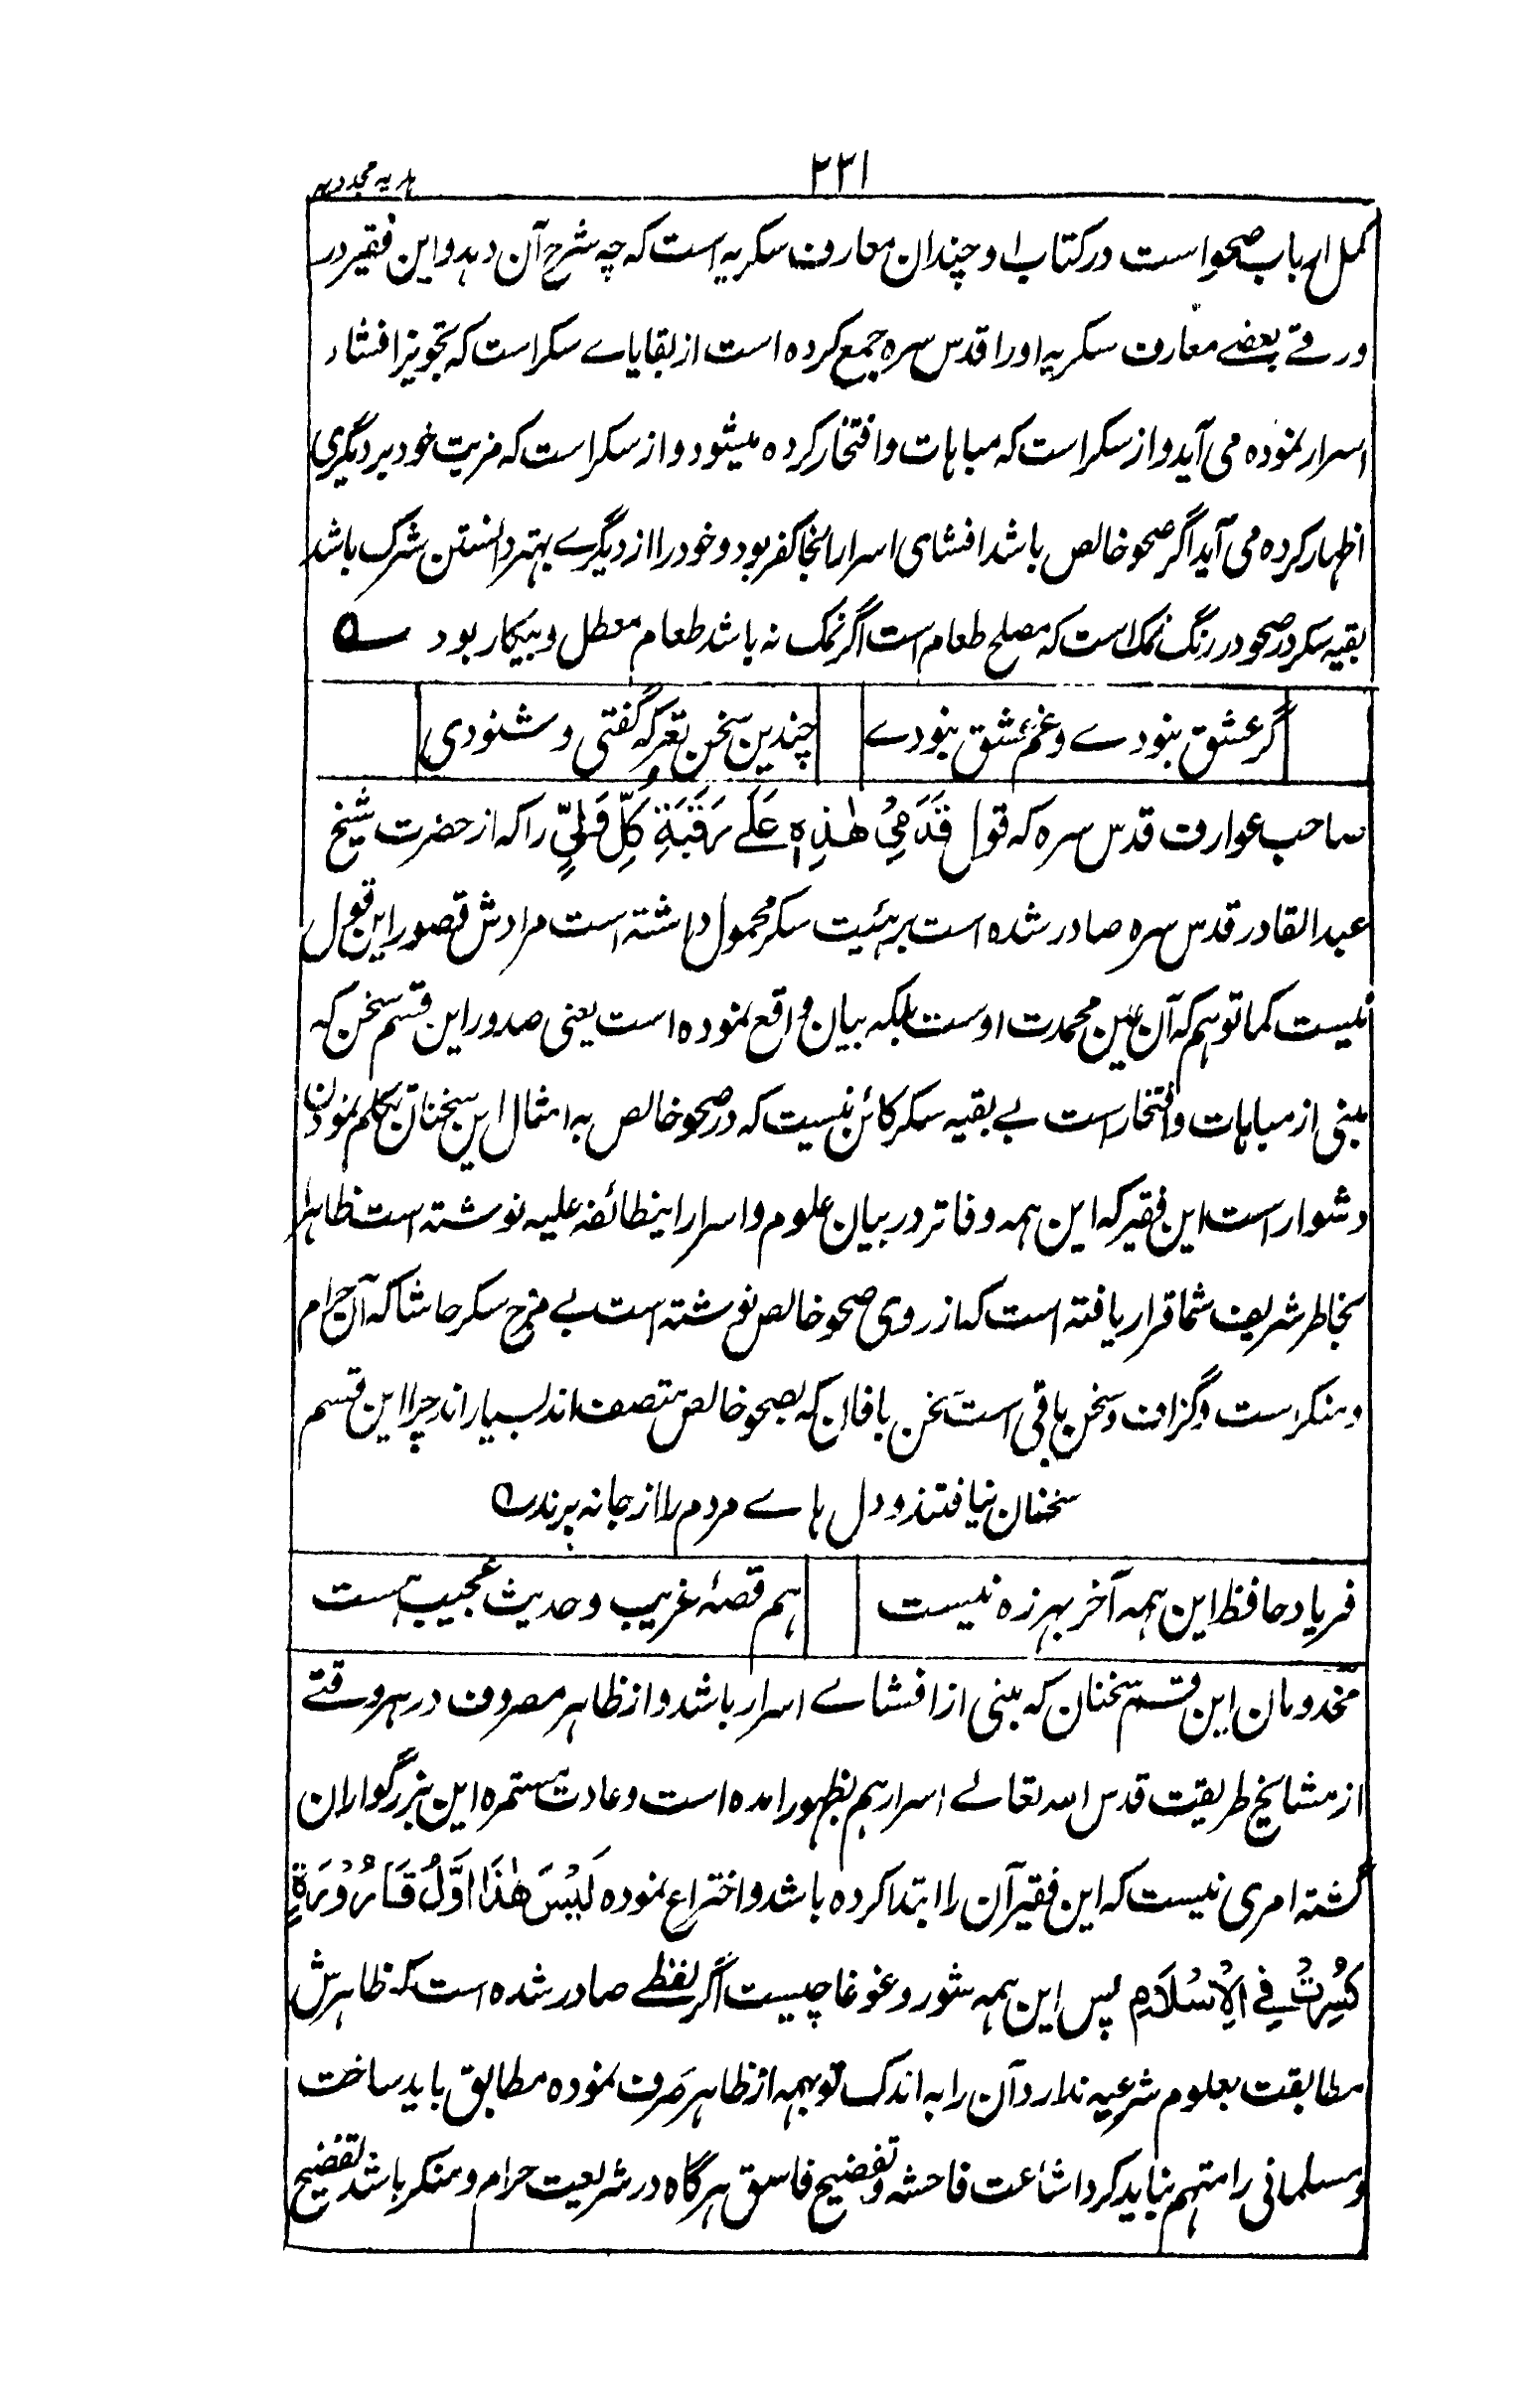 ہدیہ مجددیہ
۲۳۱
کمل ارباب صحو است در کتاب او چندان معارف سکریہ است کہ چہ شرح آن دہد و این فقیر در
ورقے بعضے معارف سکریہ او را قدس سرہ جمع کردہ است از بقایاے سکر است کہ تجویز افشاء
اسرار نمودہ می آید و از سکر است کہ مباہات و افتخار کردہ میشود و از سکر است کہ مزیت خود بر دیگری
اظہار کردہ می آید اگر صحو خالص باشد افشای اسرار آنجا کفر بود و خود را از دیگرے بہتر دانستن شرک باشد
بقیہ سکر در صحو در رنگ نمک است کہ مصلح طعام است اگر نمک نہ باشد طعام معطل و بیکار بود ؎
گر عشق نبودے و غم عشق نبودے چندین سخن نغز کہ گفتی و شنودی
صاحب عوارف قدس سرہ کہ قول قَدَمِیْ ھٰذِہٖ عَلٰے رَقَبَۃِ کُلِّ وَلِیٍّ را کہ از حضرت شیخ
عبد القادر قدس سرہ صادر شدہ است بر ہئیت سکر محمول داشتہ است مرادش قصور این قول
نیست کما توہم کہ آن عین محمدت اوست بلکہ بیان واقع نمودہ است یعنی صدور این قسم سخن کہ
مبنی از مباہات و افتخار است بے بقیہ سکر کائن نیست کہ در صحو خالص بہ امثال این سخنان تکلم نمودن
دشوار است این فقیر کہ این ہمہ دفاتر در بیان علوم و اسرار اینطائفہ علیہ نوشتہ است ظاہرا
بخاطر شریف شما قرار یافتہ است کہ از روی صحو خالص نوشتہ است بے مزج سکر حاشا کہ آن حرام
و منکر است و گزاف و سخن باقی است سخن بافان کہ بصحو خالص متصف اند بسیار اند چرا این قسم
سخنان نیافتند و دل ہاے مردم را از جا نہ برند ؎
فریاد حافظ این ہمہ آخر بہرزہ نیست ہم قصۂ غریب و حدیث عجیب ہست
مخدومان این قسم سخنان کہ مبنی از افشاے اسرار باشد و از ظاہر مصروف در ہر وقتے
از مشایخ طریقت قدس اللہ تعالے اسرارہم بظہور امدہ است و عادت مستمرہ این بزرگواران
گشتہ امری نیست کہ این فقیر آن را ابتدا کردہ باشد و اختراع نمودہ لَیْسَ ھٰذَا اَوَّلُ قَارُوْرَۃٍ
کُسِرَتْ فِے الْاِسْلَامِ پس این ہمہ شور و غوغا چیست اگر لفظے صادر شدہ است کہ ظاہرش
مطابقت بعلوم شرعیہ ندارد آن را بہ اندک توجہہ از ظاہر صَرف نمودہ مطابق باید ساخت
و مسلمانی را متہم نباید کرد اشاعت فاحشہ و تفضیح فاسق ہر گاہ در شریعت حرام و منکر باشد تفضیح